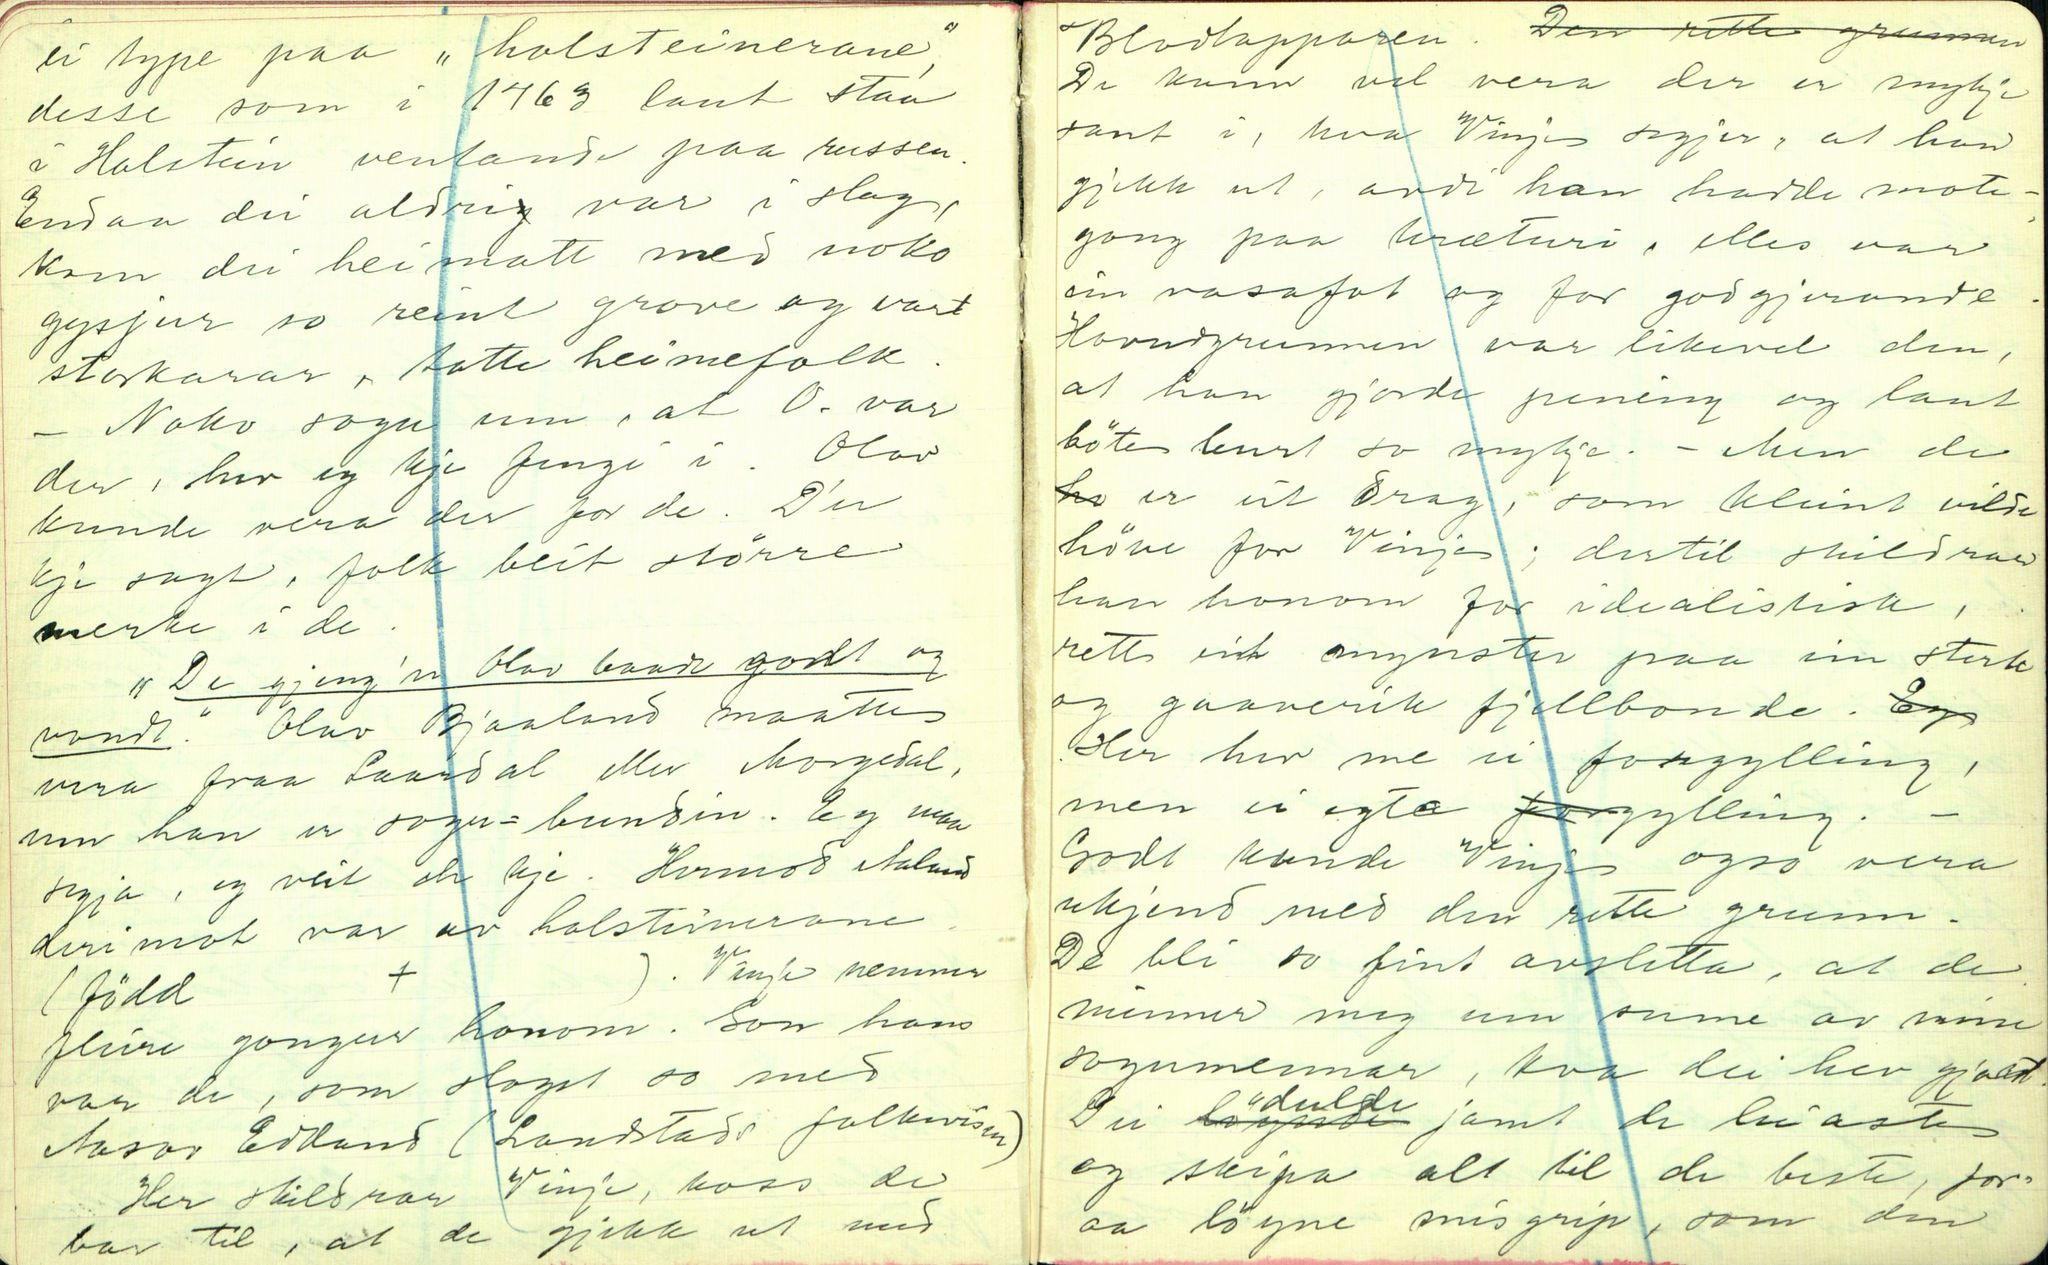 ei type paa „holsteinerane",
desse som i 1763 laut staa
i Holstein ventande paa russen.
Endaa dei aldrig var i slag,
kom dei heimatt med noko
gysjur so reint grove og vart
storkarar, totte heimefolk.
– Noko sogu um, at O. var
der, hev eg kje fengi i. Olav
kunde vera der for de. D'er
kje sagt, folk beit större
merke i de.
„De gjeng'n Olav baade godt og
vondt." Olav Bjaaland maatte
vera fraa Laardal eller Morgedal,
um han er sogu-bundin. Eg maa
segja, eg veit de kje. Hermod Aaland
derimot var av holsteinerane.
(född + ). Vinje nemner
fleire gonger honom. Son hans
var de, som slogst so med
Aasov Edland (Landstads folkevisur)
Her skildrar Vinje, koss de
bar til, at de gjekk ut med
Blodtapparen. Den rette grunnen
De kann vel vera der er mykje
sant i, kva Vinje segjer, at han
gjekk ut, avdi han hadde mote-
gong paa kræturi, elles var
ein vasafot og for godgjerande.
Hovudgrunnen var likevel den,
at han gjorde pening og laut
böte burt so mykje. – Men de
ho er eit drag, som kleint vilde
höve for Vinje; dertil skildrar
han honom for idealistisk,
rett eit mynster paa ein sterk
og gaaverik fjellbonde. Eg
Her hev me ei forgylling,
men ei egte forgylling. –
Godt kunde Vinje ogso vera
ukjend med den rette grunn.
De bli so fint avsletta, at de
minner meg um sume av mine
sogumennar, kva dei hev gjort.
Dei löynde dulde jamt de leiaste
og skipa alt til de beste, for
aa löyne misgrip, som den